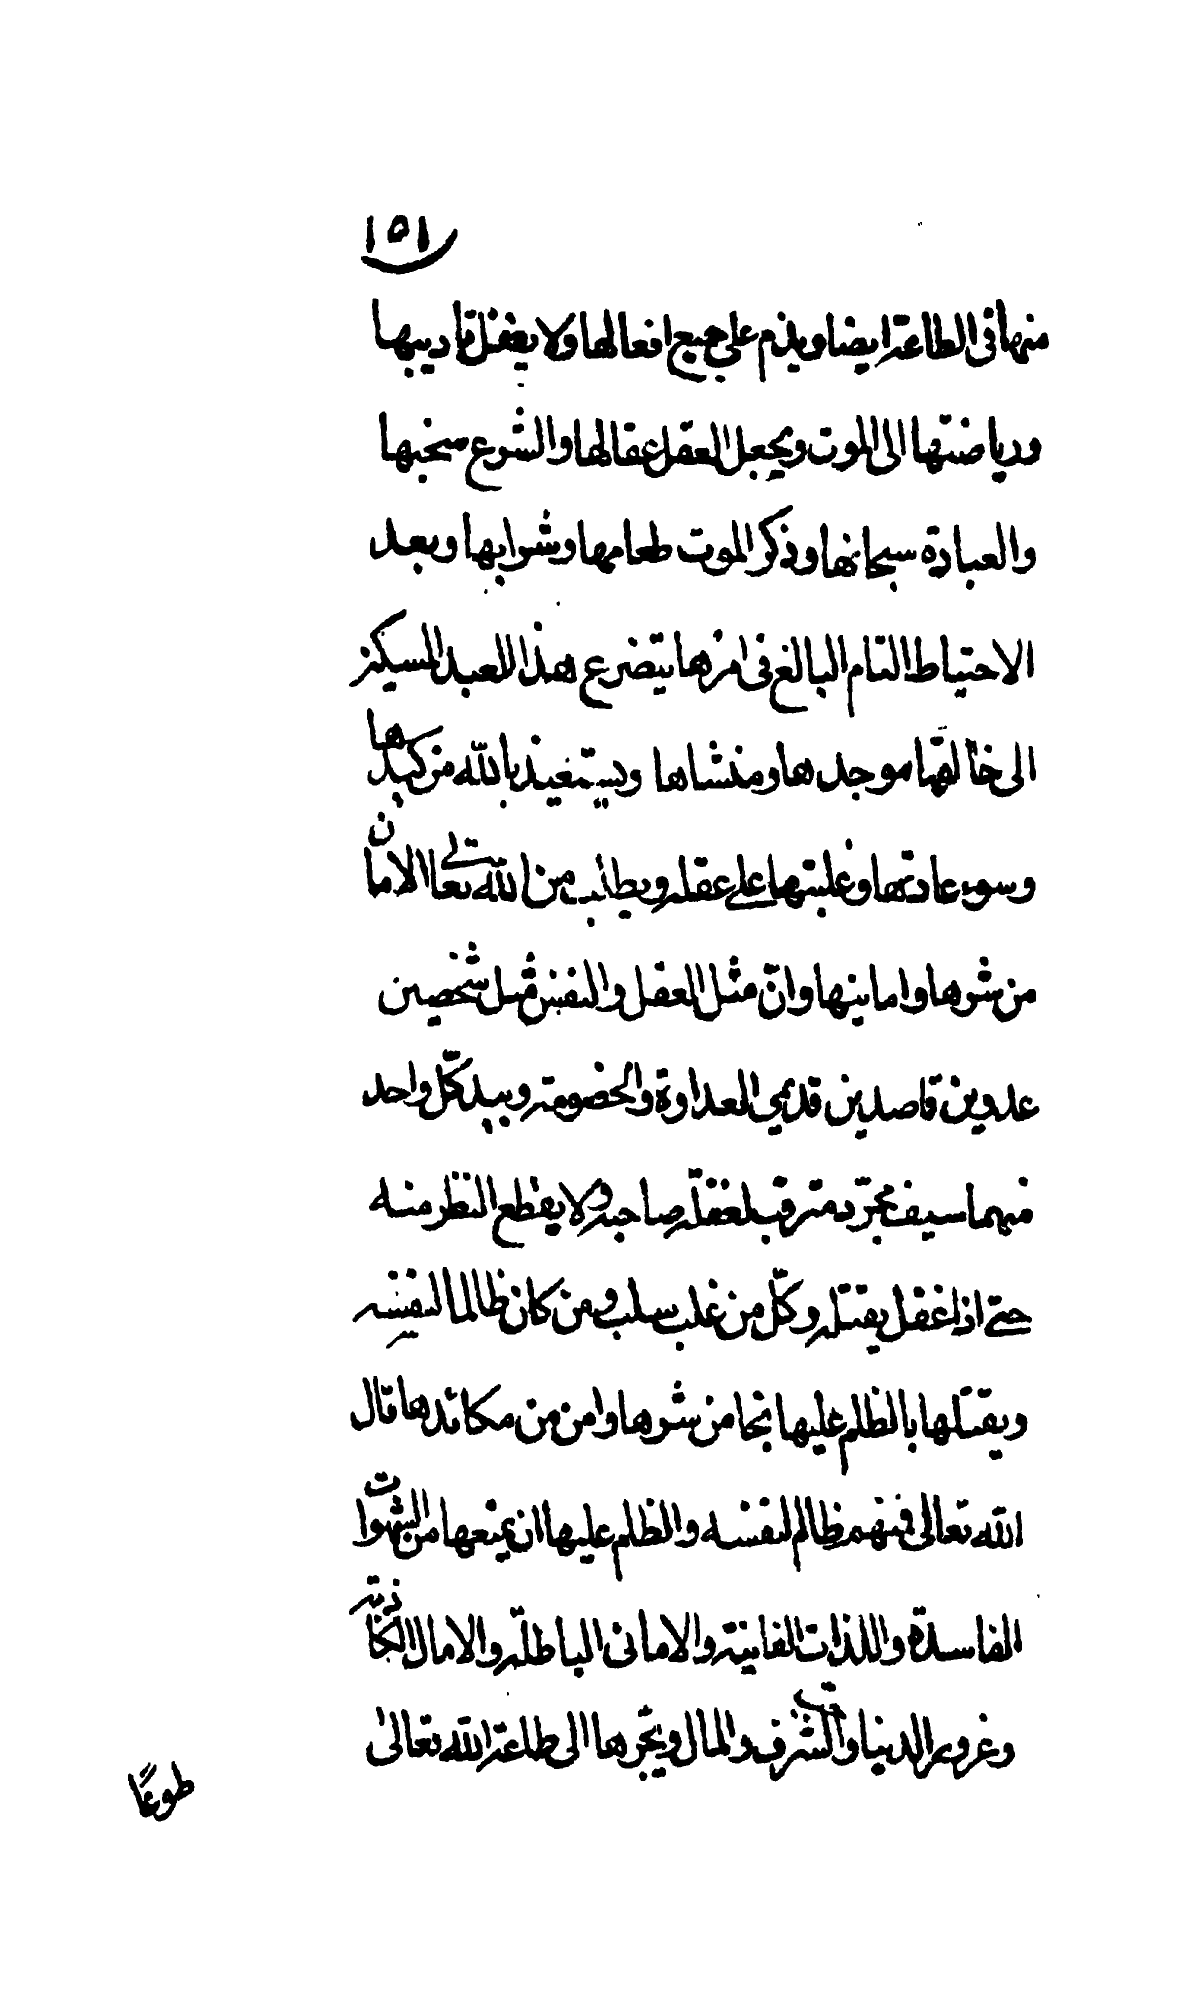 ١٥١
منها فى الطاعة ايضا ويذم على جميع افعالها ولا يغفل تاديبها
ورياضتها الى الموت ويجعل العقل عقالها والشرع سجنها
والعبادة سبحانها وذكر الموت طعامها وشرابها وبعد
الاحتياط التام البالغ فى امرها يتضرع هذا العبد المسكين
الى خالقها موجدها ومنشاها ويستعيذ بالله من كيدها
وسوء عادتها وغلبتها على عقله ويطلب من الله تعالى الامان
من شرها وامانيها وانّ مثل العقل والنفس مثل شخصين
عدوين قاصدين قديمي العداوة والخصومة وبيد كلّ واحد
منهما سيف مجرّد مترقب لغفلة صاحبه ولا يقطع النظر منه
حتى اذا غفل يقتله وكلّ من غلب سلب ومن كان ظالما لنفسه
ويقتلها بالظلم عليها نجا من شرها وامن من مكائدها قال
الله تعالى فمنهم ظالم لنفسه والظلم عليها ان يمنعها من الشهوات
الفاسدة واللذات الفانية والامانى الباطلة والامال الكاذبة
وغرور الدنيا وحب الشرف والمال ويجرها الى طاعة الله تعالى
طوعًا